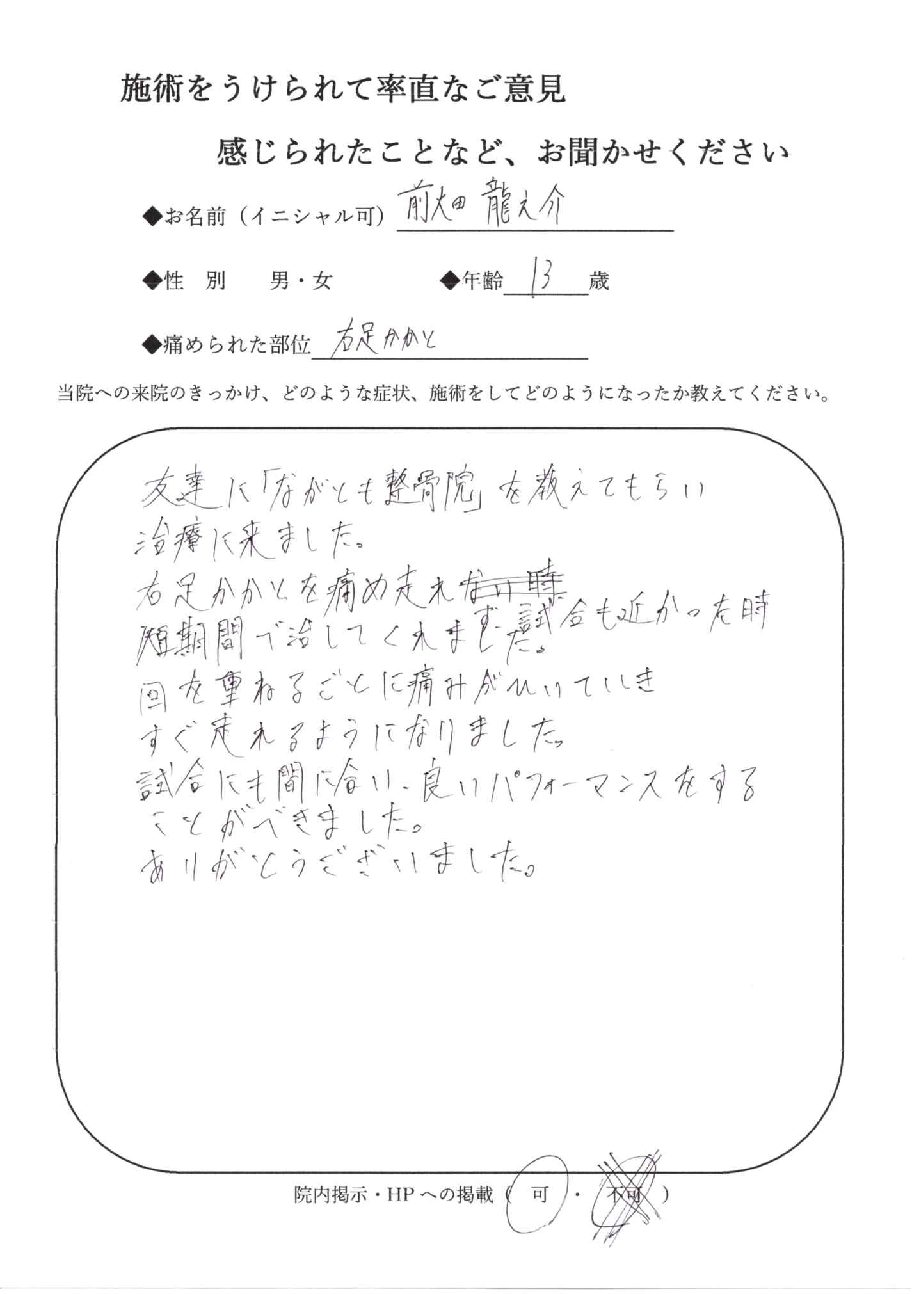 施術をうけられて率直なご意見
感じられたことなど、お聞かせください
◆お名前（イニシャル可） 前畑 龍之介
◆性　別　　男・女　　◆年齢 13 歳
◆痛められた部位 右足かかと
当院への来院のきっかけ、どのような症状、施術をしてどのようになったか教えてください。
友達に「ながとも整骨院」を教えてもらい
治療に来ました。
右足かかとを痛め走れない時
ず、試合も近かった時
短期間で治してくれました。
回を重ねるごとに痛みがひいていき
すぐ走れるようになりました。
試合にも間に合い、良いパフォーマンスをする
ことができました。
ありがとうございました。
院内掲示・HPへの掲載（　可　・　不可　）